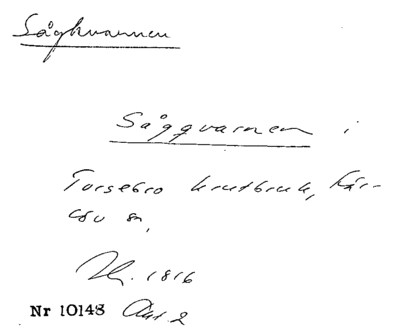 Sågkvarnen
Såggvarnen i
Torsebro krutbruk, Fär-
löv sn,
Jb. 1816
Nr 10148 Akt 2